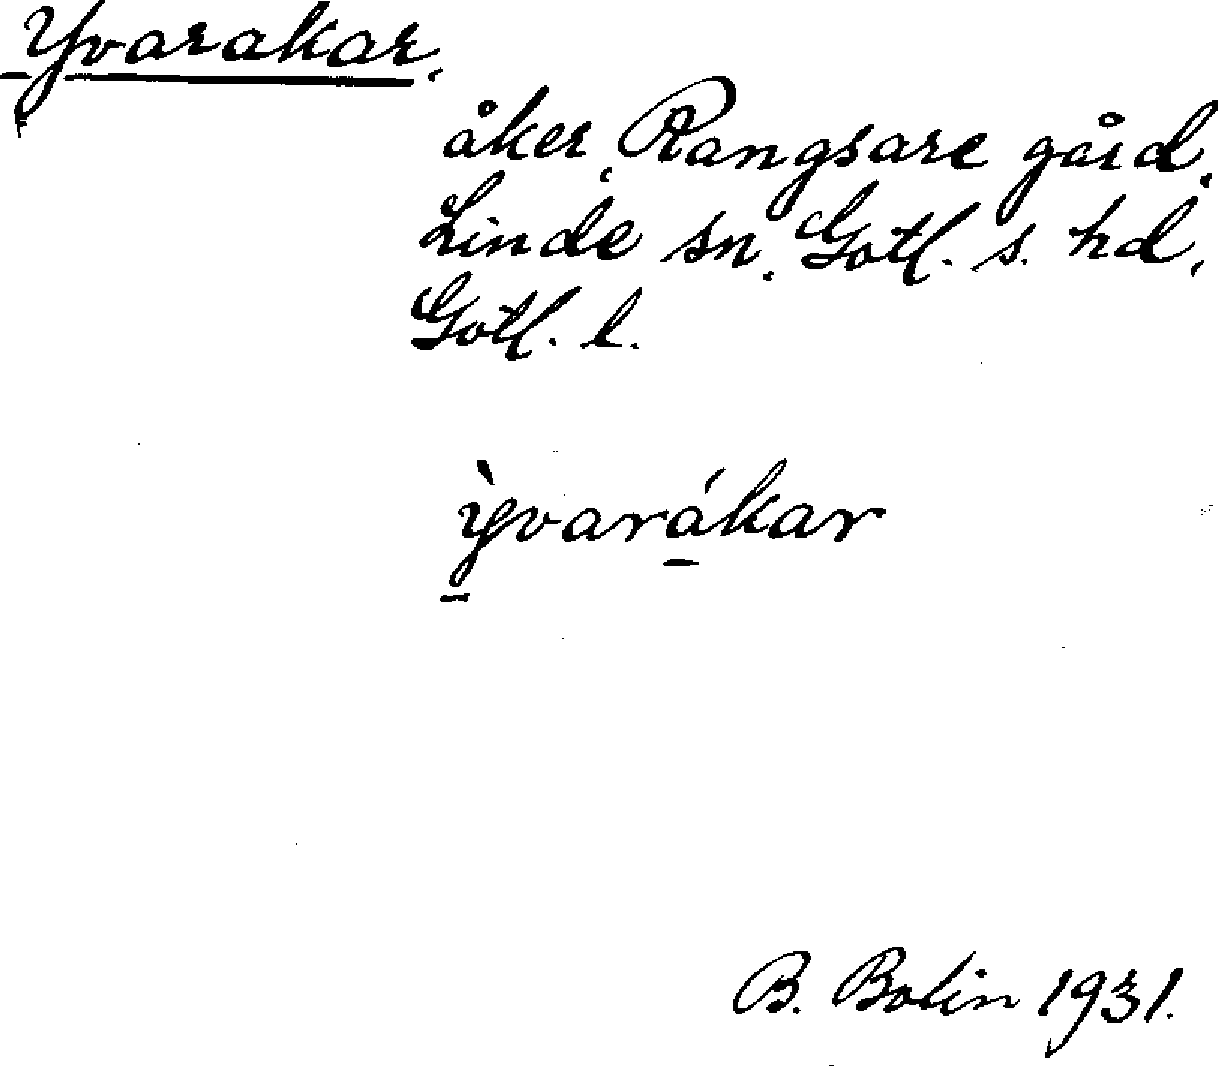 Yvarakar.
åker, Rangsare gård,
Linde sn, Gotl. s. hd,
Gotl. l.
ỳvarákar
B. Bolin 1931.